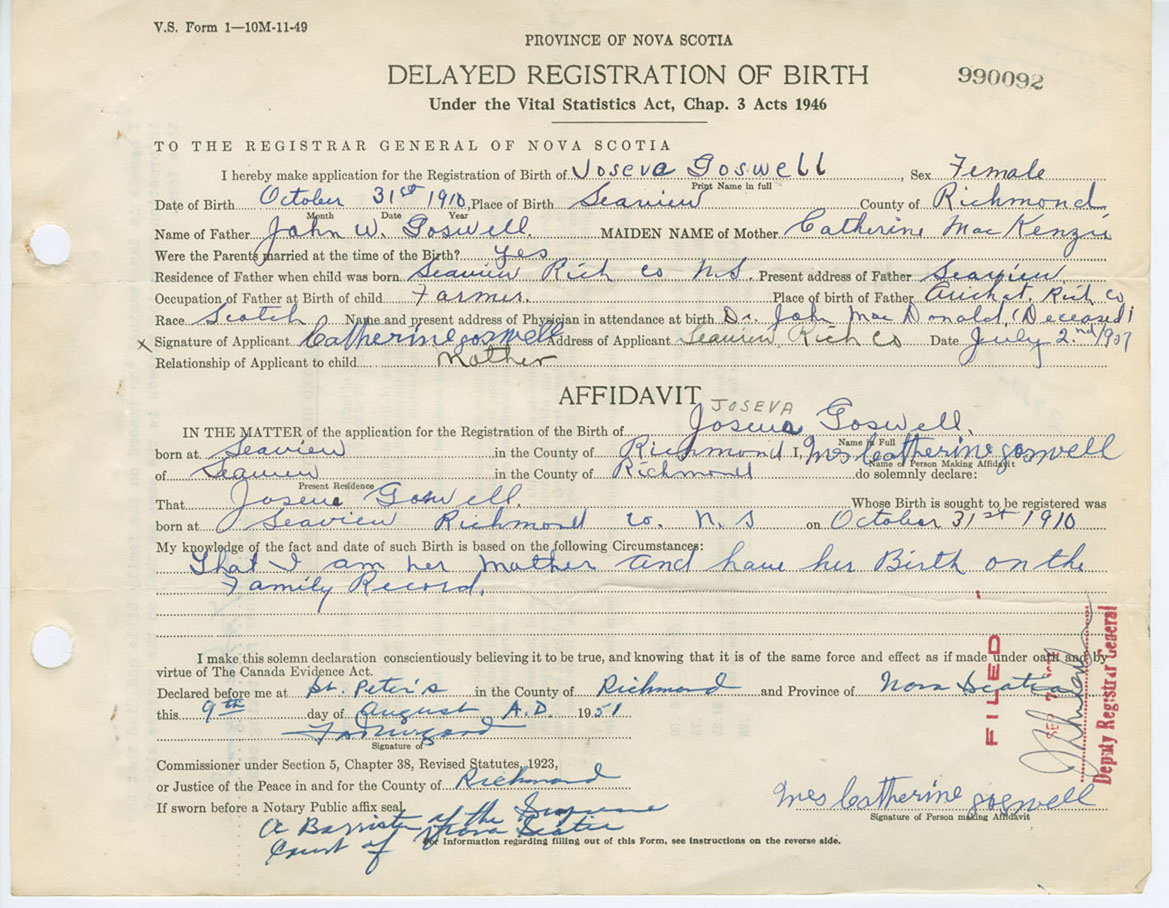 V.S. Form 1—10M-11-49
PROVINCE OF NOVA SCOTIA
DELAYED REGISTRATION OF BIRTH
990092
Under the Vital Statistics Act, Chap. 3 Acts 1946
TO THE REGISTRAR GENERAL OF NOVA SCOTIA
I hereby make application for the Registration of Birth of Joseva Goswell, Sex Female
Print Name in full
Date of Birth October 31st 1910, Place of Birth Seaview County of Richmond
Month Date Year
Name of Father John W. Goswell MAIDEN NAME of Mother Catherine MacKenzie
Were the Parents married at the time of the Birth? Yes
Residence of Father when child was born Seaview Rich Co N.S. Present address of Father Seaview
Occupation of Father at Birth of child Farmer. Place of birth of Father Arichat. Rich Co
Race Scotch Name and present address of Physician in attendance at birth Dr. John MacDonald, (Deceased)
x Signature of Applicant Catherine goswell Address of Applicant Seaview, Rich Co Date July 2nd
Relationship of Applicant to child Mother
AFFIDAVIT
JOSEVA
IN THE MATTER of the application for the Registration of the Birth of Josena Goswell.
Name in Full
born at Seaview in the County of Richmond I, Mrs Catherine goswell
Name of Person Making Affidavit
of Seaview in the County of Richmond do solemnly declare:
Present Residence
That Josena Goswell. Whose Birth is sought to be registered was
born at Seaview Richmond Co. N.S on October 31st 1910
My knowledge of the fact and date of such Birth is based on the following Circumstances:
That I am her Mother and have her Birth on the
Family Record.
I make this solemn declaration conscientiously believing it to be true, and knowing that it is of the same force and effect as if made under oath and by
virtue of The Canada Evidence Act.
Declared before me at St. Peter's in the County of Richmond and Province of Nova Scotia
this 9th day of August A.D. 1951
Signature of
FILED
SEP
Deputy Registrar General
Commissioner under Section 5, Chapter 38, Revised Statutes, 1923,
or Justice of the Peace in and for the County of Richmond
If sworn before a Notary Public affix seal.
Mrs Catherine goswell
Signature of Person making Affidavit
A Barrister of the Supreme
Court of Nova Scotia
For Information regarding filling out of this Form, see instructions on the reverse side.